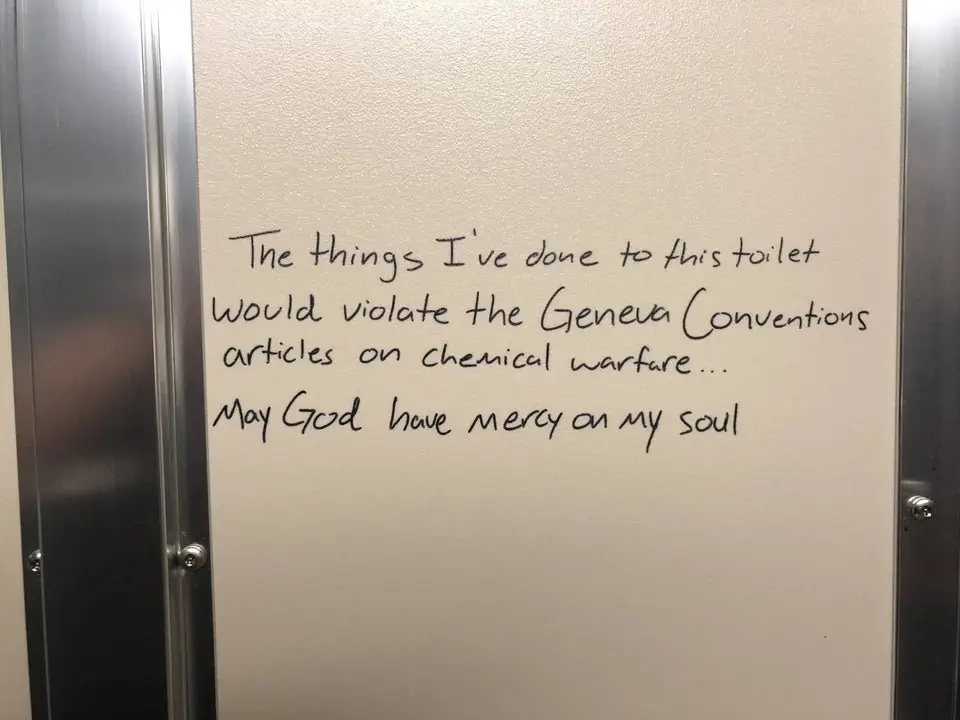 The things I've done to this toilet
would violate the Geneva Conventions
articles on chemical warfare...
May God have mercy on my soul